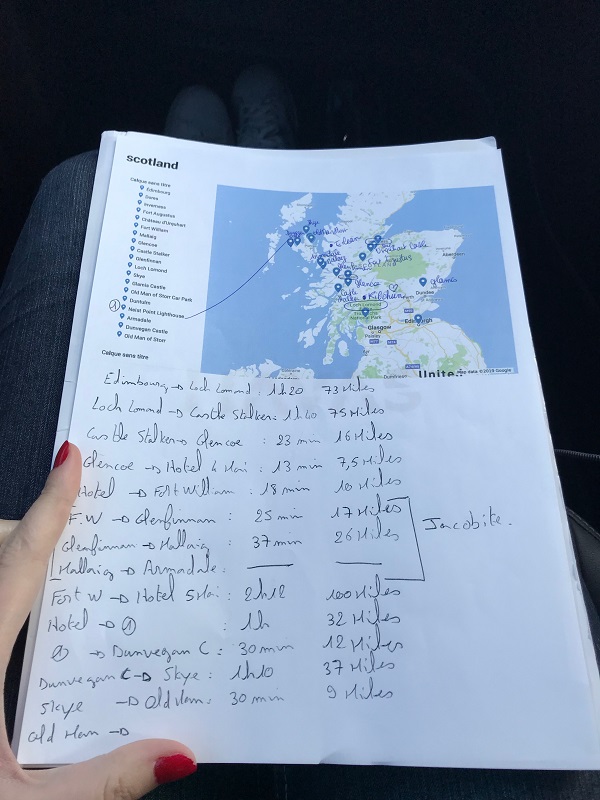 scotland
Calque sans titre
Edimbourg
Doree
Inverness
Fort Augustus
Château d'Urquhart
Fort William
Mallaig
Glencoe
Castle Stalker
Glenfinnan
Loch Lomond
Skye
Glamis Castle
Old Man of Storr Car Park
Dunkulm
① Neist Point Lighthouse
Armadale
Dunvegan Castle
Old Man of Storr
Calque sans titre
Skye
Eilean
Urquhart Castle
Fort Augustus
Aberdeen
Glencoe
Glamis
Kilchurn
Dundee
Loch Lomond
Glasgow
Paisley
Edinburgh
Dumfries
Unite
Map data ©2019 Google
Edimbourg → Loch Lomond : 1h20 73 Miles
Loch Lomond → Castle Stalker : 1h40 75 Miles
Castle Stalker → Glencoe : 23 min 16 Miles
Glencoe → Hotel 4 Mai : 13 min 7,5 Miles
Hotel → Fort William : 18 min 10 Miles
F.W → Glenfinnan : 25 min 17 Miles
Jacobite.
Glenfinnan → Mallaig : 37 min 26 Miles
Mallaig → Armadale :
Fort W → Hotel 5 Mai : 2h12 100 Miles
Hotel → ① : 1h 32 Miles
① → Dunvegan C : 30 min 12 Miles
Dunvegan C → Skye : 1h10 37 Miles
Skye → Old Man : 30 min 9 Miles
Old Man →